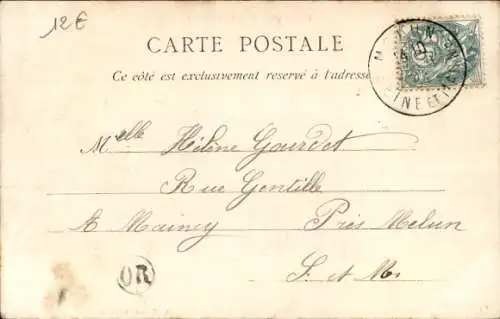 12€
CARTE POSTALE
Ce côté est exclusivement réservé à l'adresse
Melle Hélène Gourdet
Rue Gentille
A Maincy Près Melun
S. et M.
OR